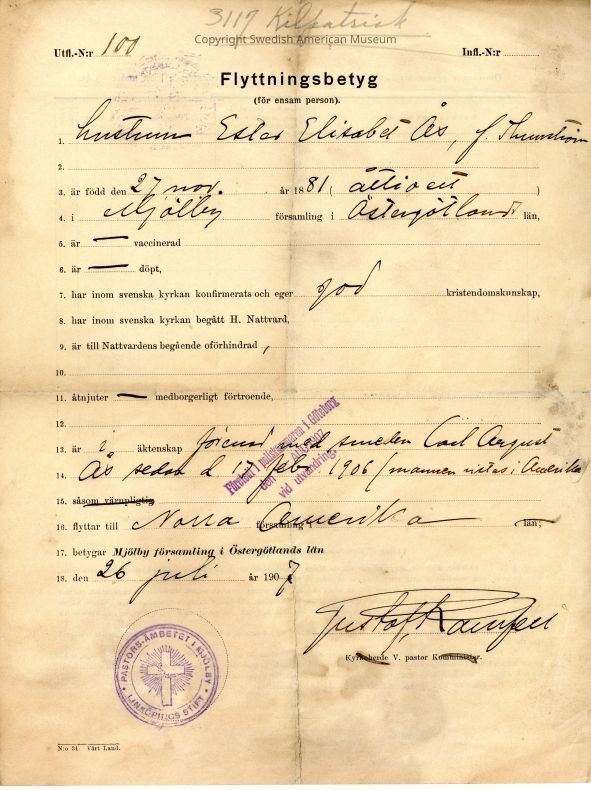 3117 Kilpatrick
Copyright Swedish American Museum
Utfl.-N:r 100
Infl.-N:r
Flyttningsbetyg
(för ensam person).
1. hustrun Ester Elisabet Ås, f.
2.
3. är född den 27 nov. år 1881 (åttioett)
4. i Mjölby församling i Östergötlands län,
5. är — vaccinerad
6. är — döpt,
7. har inom svenska kyrkan konfirmerats och eger god kristendomskunskap,
8. har inom svenska kyrkan begått H. Nattvard,
9. är till Nattvardens begående oförhindrad,
10.
11. åtnjuter — medborgerligt förtroende,
12.
13. är i äktenskap förenad med smeden Carl August
14. Ås sedan d 17 febr. 1906 (mannen vistas i Amerika)
Företedt i poliskammaren i Göteborg
den 1907
vid utvandring.
15. såsom värnpligtig
16. flyttar till Norra församling i Amerika — län;
17. betygar Mjölby församling i Östergötlands län
18. den 26 juli år 1907
Gustaf
Kyrkoherde V. pastor Komminister.
PASTORS-ÄMBETET I MJÖLBY
LINKÖPINGS STIFT
N:o 34. Vårt Land.